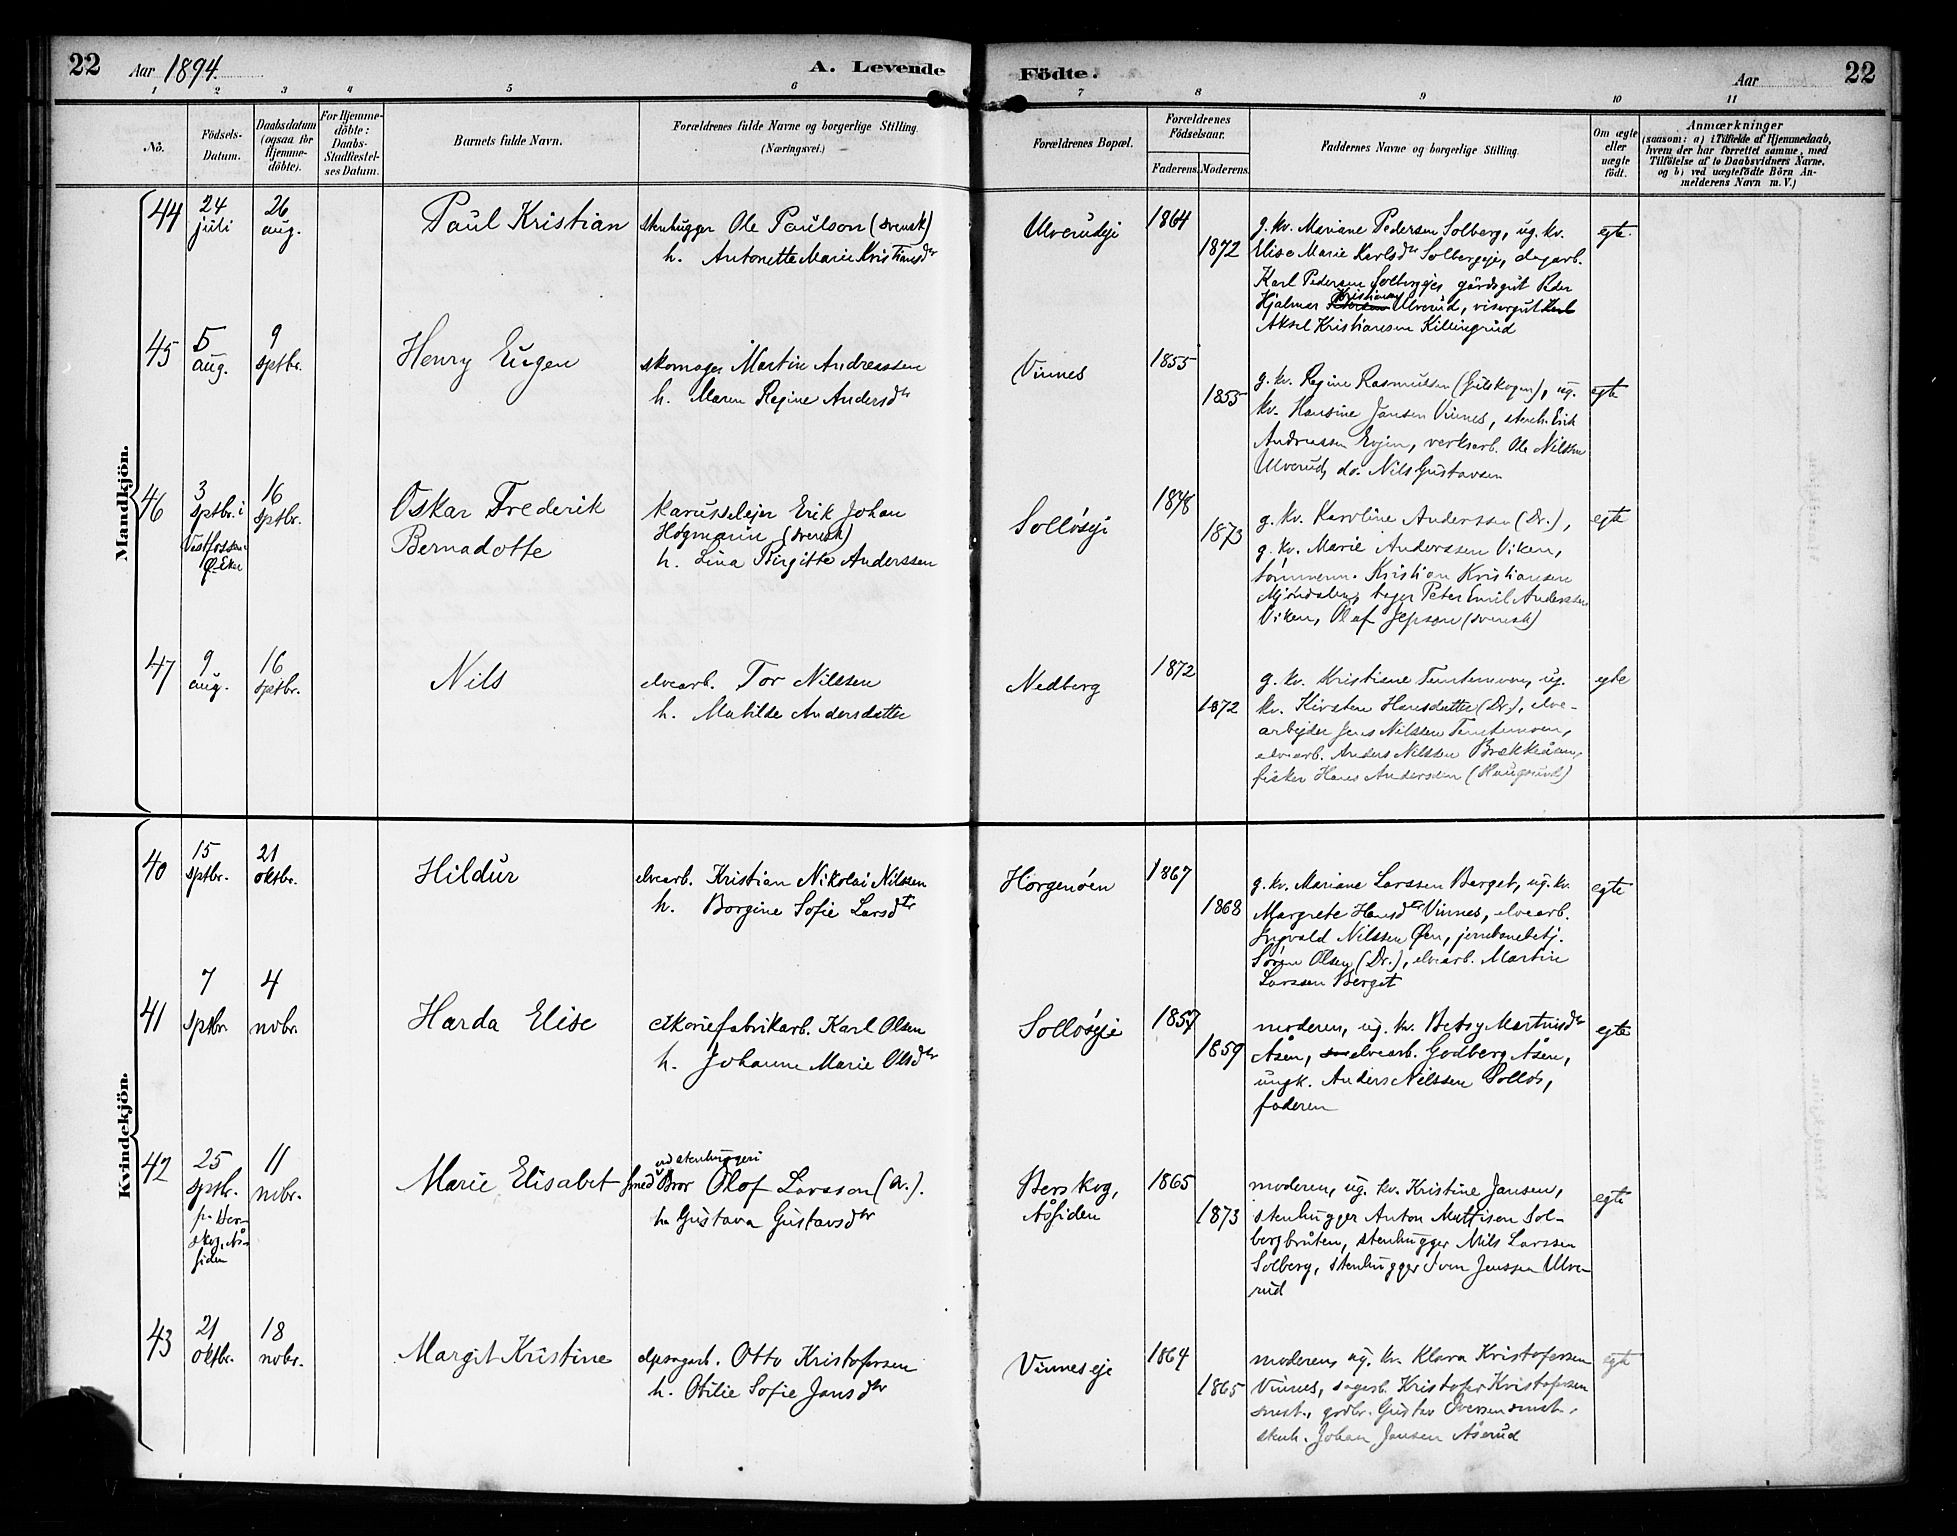 22
Aar 1894.
A. Levende
Födte.
Aar
22
1 2 3 4 5 6 7 8 9 10 11
No.
Födsels-
Datum.
Daabsdatum
(ogsaa for
Hjemme-
döbte).
For Hjemme-
döbte:
Daabs-
Stadfæstel-
ses Datum.
Barnets fulde Navn.
Forældrenes fulde Navne og borgerlige Stilling.
(Næringsvei.)
Forældrenes Bopæl.
Forældrenes
Födselsaar.
Faderens.
Moderens.
Faddernes Navne og borgerlige Stilling.
Om ægte
eller
uægte
födt.
Anmærkninger
(saasom: a) i Tilfælde af Hjemmedaab,
hvem der har forrettet samme, med
Tilföielse af to Daabsvidners Navne.
og b) ved uægtefödte Börn An-
melderens Navn m. V.)
Mandkjön.
44
24
juli
26
aug.
Paul Kristian
stenhugger Ole Paulson (svensk)
h. Antonette Marie Kristiansdtr
Ulverudeje
1864
1872
g. kv. Mariane Pedersen Solberg, ug. kv.
Elise Marie Karlsdtr Solbergeje, dagarb.
Karl Pedersen Solbergeje, gårdsgut Peder
Hjalmar Kristiansen Ulverud, visergut
Aksel Kristiansen Killingrud
egte.
45
5
aug.
9
sptbr.
Henry Eugen
skomager Martin Andreassen
h. Maren Regine Andersdtr
Vinnes
1855
1855
g. kv. Regine Rasmussen (Gulskogen), ug.
kv. Hansine Jansen Vinnes, stenh. Erik
Andreassen Evjen, verksarb. Ole Nilssen
Ulverud, do. Nils Gustavsen
egte
46
3
sptbr. i
Vestfossen
Ø. Eker
16
sptbr.
Oskar Frederik
Bernadotte
karusselejer Erik Johan
Högmann (svensk)
h. Lina Birgitte Anderssen
Solløseje
1878
1873
g. kv. Karoline Anderssen (Dr.),
g. kv. Marie Anderssen Viken,
tømmerm. Kristian Kristiansen
Mjøndalen, bager Peter Emil Anderssen
Viken, Olaf Jepson (svensk)
egte
47
9
aug.
16
sptbr.
Nils
elvearb. Tor Nilssen
h. Matilde Andersdatter
Nedberg
1872
1872
g. kv. Kristiane Temtemoen, ug.
kv. Kirsten Hansdatter (Dr.), elve-
arbejder Jens Nilssen Temtemoen,
elvearb. Anders Nilssen Brækkeåsen,
fisker Hans Anderssen (Haugsund)
egte
Kvindekjön.
40
15
sptbr.
21
oktbr.
Hildur
elvearb. Kristian Nikolai Nilssen
h. Borgine Sofie Larsdtr
Horgenøen
1867
1868
g. kv. Mariane Larssen Berget, ug. kv.
Margrete Hansdtr Vinnes, elvearb.
Ingvald Nilssen Øen, jernbanebetj.
Søren Olsen (Dr.), elvearb. Martin
Larssen Berget
egte
41
7
sptbr.
4
nvbr.
Harda Elise
cikoriefabrikarb. Karl Olsen
h. Johanne Marie Olsdtr
Solløseje
1857
1859
moderen, ug. kv. Betsy Martinsdtr
Åsen, elvearb. Godberg Åsen,
ungk. Anders Nilssen Solløs,
faderen
egte
42
25
sptbr.
på Ber-
skog, Ås-
siden
11
nvbr.
Marie Elisabet
ved stenhuggeri
smed Bror Olof Larsson (sv.).
h. Gustava Gustavsdtr
Berskog,
Åssiden
1865
1873
moderen, ug. kv. Kristine Jansen,
stenhugger Anton Mattisen Sol-
bergbråten, stenhugger Nils Larssen
Solberg, stenhugger Sven Jenssen Ulve-
rud
egte
43
21
oktbr.
18
nvbr.
Margit Kristine
dpsagarb. Otto Kristofersen
h. Otilie Sofie Jansdtr
Vinneseje
1864
1865
moderen, ug. kv. Klara Kristofersen
Vinnes, sagarb. Kristofer Kristofersen
smst., gødbr. Gustav Iversen smst.,
stenh. Johan Jansen Åserud
egte